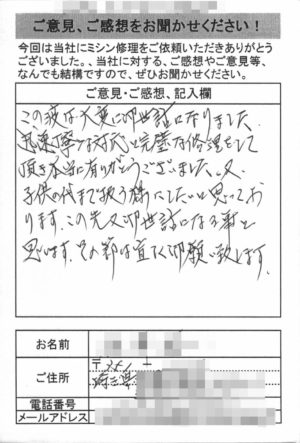 ご意見、ご感想をお聞かせください！
今回は当社にミシン修理をご依頼いただきありがとう
ございました。、当社に対する、ご感想やご意見等、
なんでも結構ですので、ぜひお聞かせください。
ご意見・ご感想、記入欄
この度は大変に御世話になりました。
迅速丁寧な対応と完璧な修理をして
頂き本当に有りがとうございました。又、
子供の代まで扱う様にしたいと思ってお
ります。この先又御世話になる事と
思います。その節は宜しく御願い致します。
お名前
ご住所
〒
埼玉県
電話番号
メールアドレス